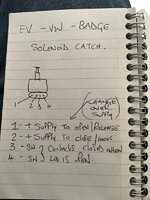 EV - VW - BADGE
SOLENOID CATCH.
1 2 3 4
(CHANGE
OVER
SUPPLY)
1 - + SUPPLY TO OPEN/RELEASE
2 - + SUPPLY TO CLOSE/
3 - SW } CONTACTS CLOSED WHEN
4 - SW } LID IS OPEN